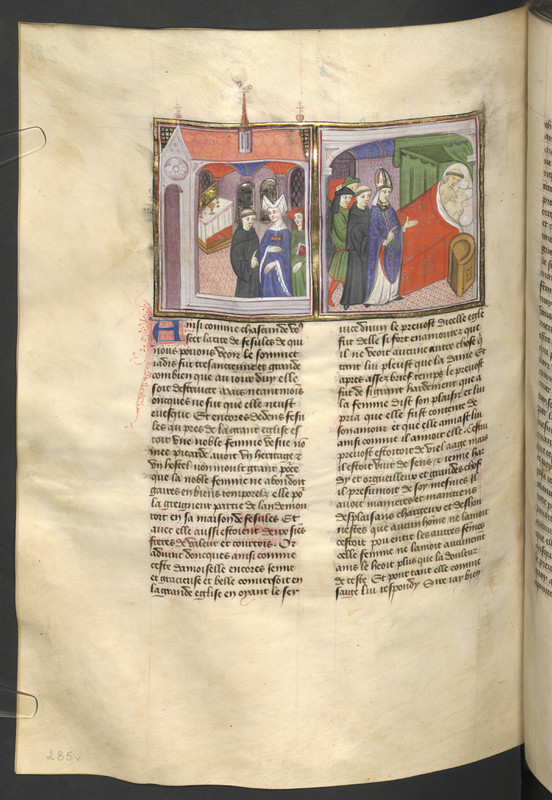 Ainsi comme chascun de vo9
scet la cite de fesules de qui
nous pouons veoir le sommet
iadis fut tresancienne et grande
combien que au iour duy elle
soit destruicte mais neantmois
oncques ne fut que elle neust
euesque Et encores dedens fesu
les au pres de la grant eglise es
toit vne noble femme vefue no
mee picarde auoit vn heritage et
vn hostel non moult grant
que la noble femme ne abondoit
gaires en biens temporelz elle
la greigneur partie de lan demou
roit en sa maison de fesules Et
auec elle aussi estoient deux ses
freres de valeur et courtois Or
aduint doncques ainsi comme
ceste damoiselle encores ieune
et gracieuse et belle conuersoit en
la grande eglise en oyant le ser
uice diuin le preuost dicelle egle
fut delle si fort enamourez que
il ne veoit aucune autre chose q
tant lui pleust que la dame Et
apres assez brief temps le preuost
fut de si grant hardement que a
la femme dist son plaisir et lui
pria que elle fust contente de
son amour et que elle amast lui
ainsi comme il amoit elle Cestui
preuost estoit de viel aage mais
il estoit vuit de sens et ieune har
dy et orgueilleux et grandes chos
il presumoit de soy mesmes Il
auoit manieres et maintiens
desplaisans chargeux et deshon
nestes que aucun home ne lamoit
cestoit pou entre les autres femes
celle femme ne lamoit aucunemt
ains le heoit plus que la douleur
de teste Et pour tant elle comme
saige lui respondy Sire iay bien
285v